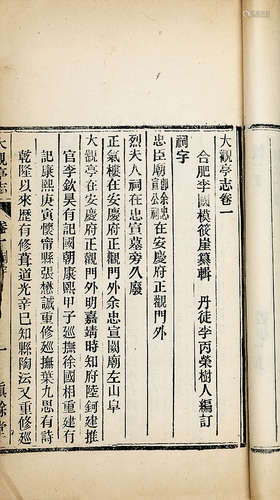 大觀亭志卷一
合肥李國模筱崖纂輯 丹徒李丙榮樹人編訂
祠宇
忠臣廟卽余忠宣公祠在安慶府正觀門外
烈夫人祠在忠宣墓旁久廢
正氣樓在安慶府正觀門外余忠宣闕廟左山阜
大觀亭在安慶府正觀門外明嘉靖時知府陸鈳建推
官李欽昊有記國朝康熙甲子廵撫徐國相重建有
記康熙庚寅懷甯縣張懋誠重修廵撫葉九思有詩
乾隆以來歷有修葺道光辛巳知縣陶澐又重修廵
大觀亭志
卷一
一
慎餘堂